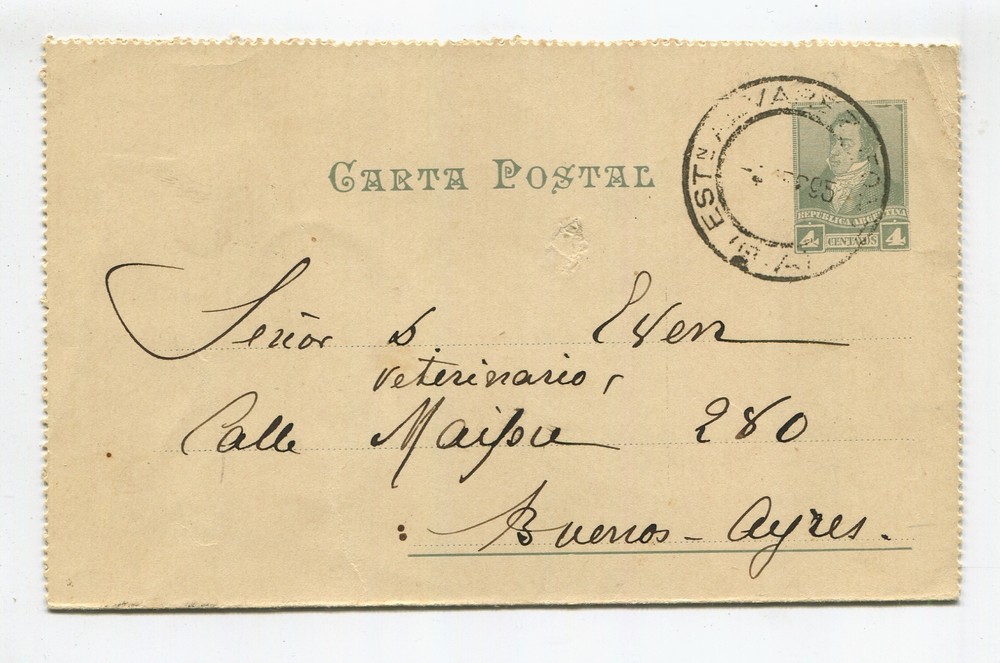 CARTA POSTAL
ESTN ALVAREZ
95
REPUBLICA ARGENTINA
4 CENTAVOS 4
Señor D. Even
veterinario,
Calle Maipu 280
Buenos-Ayres.